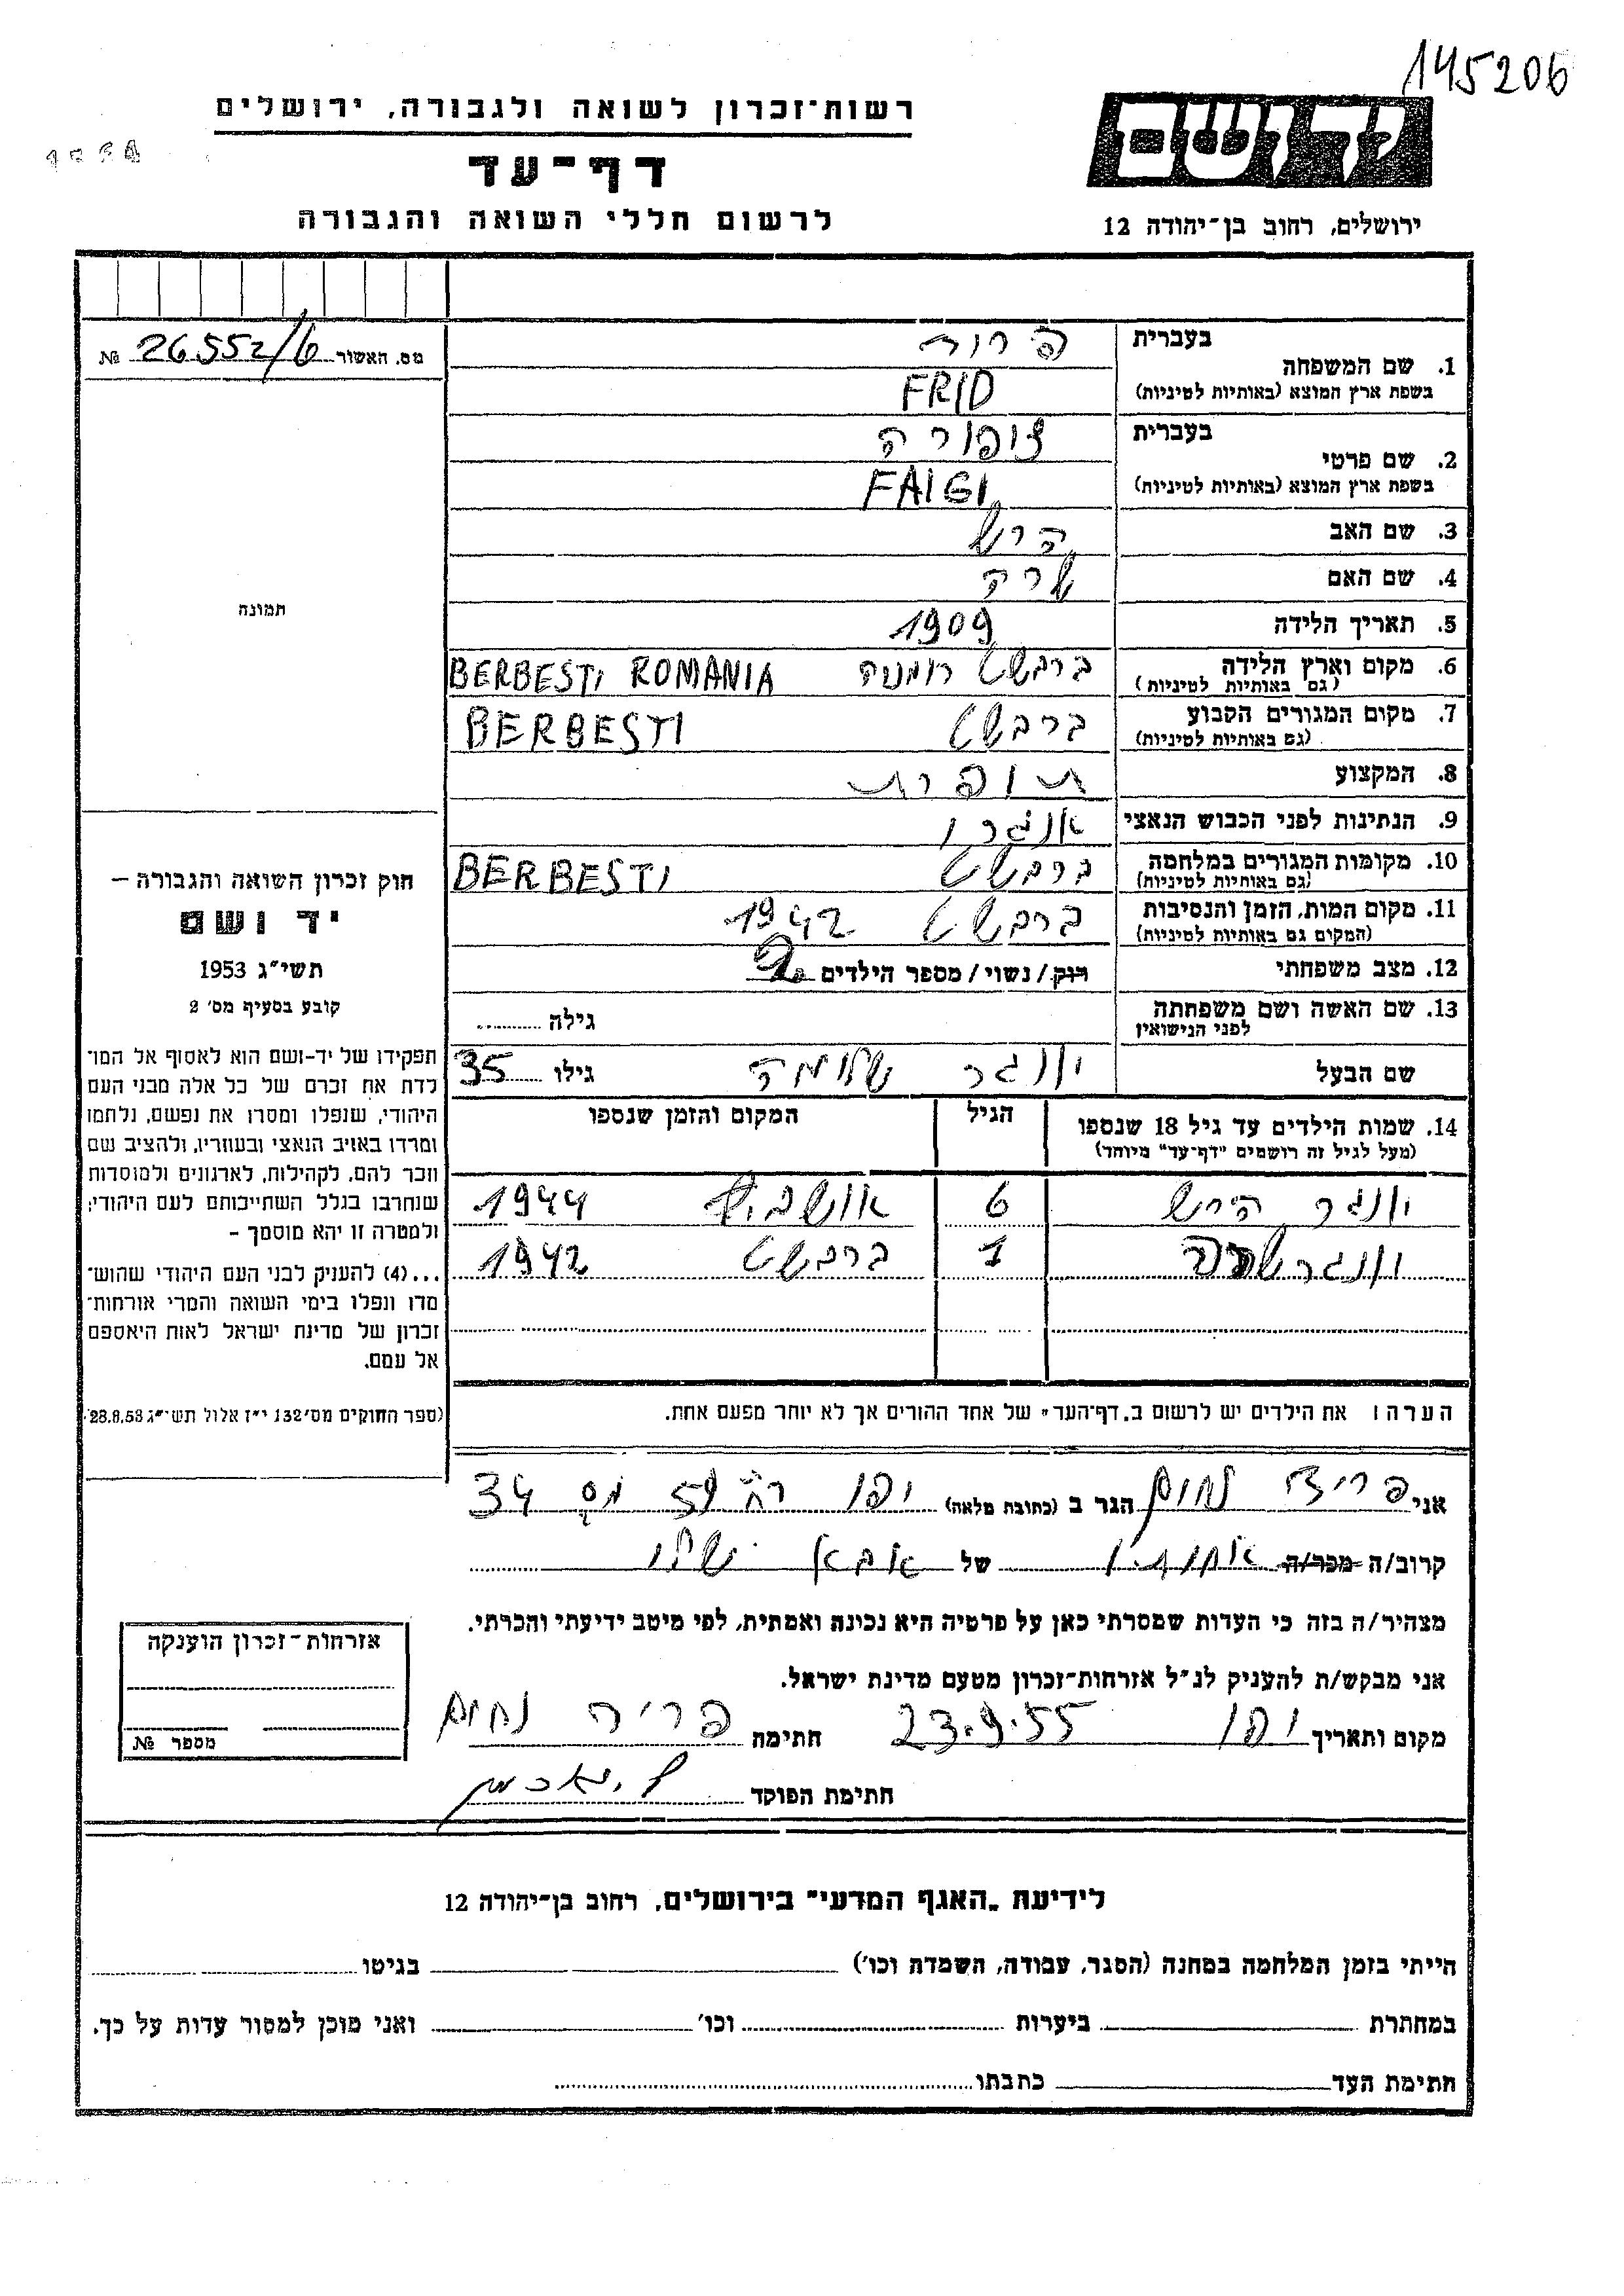 145206
רשות־זכרון לשואה ולגבורה, ירושלים
יד ושם
דף־עד
לרשום חללי השואה והגבורה
ירושלים, רחוב בן־יהודה 12
מס. האשור 26552/6 №
בעברית
1. שם המשפחה
בשפת ארץ המוצא (באותיות לטיניות) FRID
בעברית ציפורה
2. שם פרטי
בשפת ארץ המוצא (באותיות לטיניות) FAIGI
3. שם האב הרש
4. שם האם שרה
5. תאריך הלידה 1909
6. מקום וארץ הלידה ברבשט רומניה BERBESTI ROMANIA
(גם באותיות לטיניות)
7. מקום המגורים הקבוע ברבשט BERBESTI
(גם באותיות לטיניות)
8. המקצוע תופרת
9. הנתינות לפני הכבוש הנאצי
10. מקומות המגורים במלחמה ברבשט BERBESTI
(גם באותיות לטיניות)
11. מקום המות, הזמן והנסיבות ברבשט 1942
(המקום גם באותיות לטיניות)
12. מצב משפחתי רוק/נשוי/מספר הילדים 2
13. שם האשה ושם משפחתה גילה
לפני הנישואין
שם הבעל יונגר שלמה גילו 35
14. שמות הילדים עד גיל 18 שנספו הגיל המקום והזמן שנספו
(מעל לגיל זה רושמים "דף־עד" מיוחד)
יונגר הירש 6 אושביץ 1944
יונגר 1 ברבשט 1942
הערה: את הילדים יש לרשום ב„דף־העד" של אחד ההורים אך לא יותר מפעם אחת.
תמונה
חוק זכרון השואה והגבורה –
יד ושם
תשי"ג 1953
קובע בסעיף מס' 2
תפקידו של יד-ושם הוא לאסוף אל המו־
לדת את זכרם של כל אלה מבני העם
היהודי, שנפלו ומסרו את נפשם, נלחמו
ומרדו באויב הנאצי ובעוזריו, ולהציב שם
וזכר להם, לקהילות, לארגונים ולמוסדות
שנחרבו בגלל השתייכותם לעם היהודי;
ולמטרה זו יהא מוסמך –
...(4) להעניק לבני העם היהודי שהוש־
מדו ונפלו בימי השואה והמרי אזרחות־
זכרון של מדינת ישראל לאות היאספם
אל עמם.
(ספר החוקים מס' 132 י"ז אלול תשי"ג 28.8.53)
אני פריד נחום הגר ב (כתובת מלאה) יפו רח' 59 מס 34
קרוב/ה מכר/ה של
מצהיר/ה בזה כי העדות שמסרתי כאן על פרטיה היא נכונה ואמתית, לפי מיטב ידיעתי והכרתי.
אני מבקש/ת להעניק לנ"ל אזרחות־זכרון מטעם מדינת ישראל.
מקום ותאריך יפו 23.9.55 חתימה פריד נחום
חתימת הפוקד
אזרחות־זכרון הוענקה
מספר №
לידיעת „האגף המדעי" בירושלים, רחוב בן־יהודה 12
הייתי בזמן המלחמה במחנה (הסגר, עבודה, השמדת וכו') בגיטו
במחתרת ביערות וכו' ואני מוכן למסור עדות על כך.
חתימת העד כתבתו